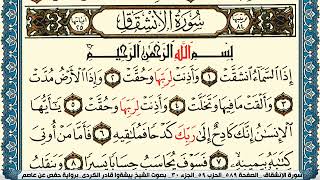 سُورَةُ الِانْشِقَاقِ
بِسْمِ اللَّهِ الرَّحْمَٰنِ الرَّحِيمِ
إِذَا السَّمَاءُ انشَقَّتْ ١ وَأَذِنَتْ لِرَبِّهَا وَحُقَّتْ ٢ وَإِذَا الْأَرْضُ مُدَّتْ
٣ وَأَلْقَتْ مَا فِيهَا وَتَخَلَّتْ ٤ وَأَذِنَتْ لِرَبِّهَا وَحُقَّتْ ٥ يَا أَيُّهَا
الْإِنسَانُ إِنَّكَ كَادِحٌ إِلَىٰ رَبِّكَ كَدْحًا فَمُلَاقِيهِ ٦ فَأَمَّا مَنْ أُوتِيَ
كِتَابَهُ بِيَمِينِهِ ٧ فَسَوْفَ يُحَاسَبُ حِسَابًا يَسِيرًا ٨ وَيَنقَلِبُ
سورة الإنشقاق . الصفحة ٥٨٩ . الحزب ٥٩ . الجزء ٣٠ . بصوت الشيخ بيشةوا قادر الكردي . برواية حفص عن عاصم